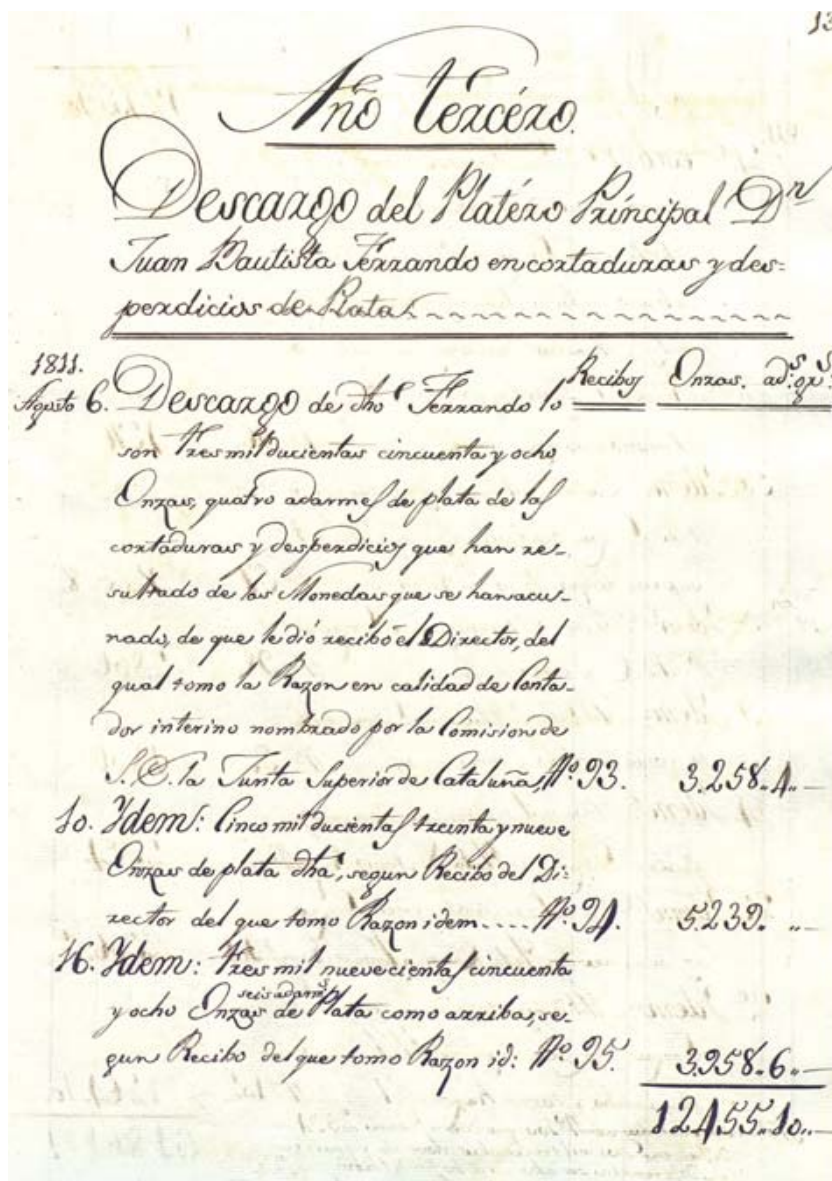 13
Año tercéro.
Descargo del Platéro Príncipal Dn
Juan Bautista Ferrando en cortaduras y des=
perdicios de Plata
1811. Recibos Onzas. ad.s gr.s
Agosto 6. Descargo de dho Ferrando lo
son tres mil ducientas cincuenta y ocho
Onzas, quatro adarmes de plata de las
cortaduras y desperdicios que han re-
sultado de las Monedas que se han acu-
nado, de que le dió recibo el Director, del
qual tomo la Razon en calidad de Conta-
dor interino nombrado por la Comision de
S.E. la Junta Superior de Cataluña, Nº 93. 3.258.. 4.. —
10. Ydem: Cinco mil ducientas treinta y nueve
Onzas de plata dha, segun Recibo del Di=
rector del que tomo Razon idem.... Nº 94. 5.239. .. —
16. Ydem: Tres mil nuevecientas cincuenta
y ocho Onzas seis adarmes de Plata como arriba, se-
gun Recibo del que tomo Razon id: Nº 95. 3.958.. 6.. —
12455.. 10.. —